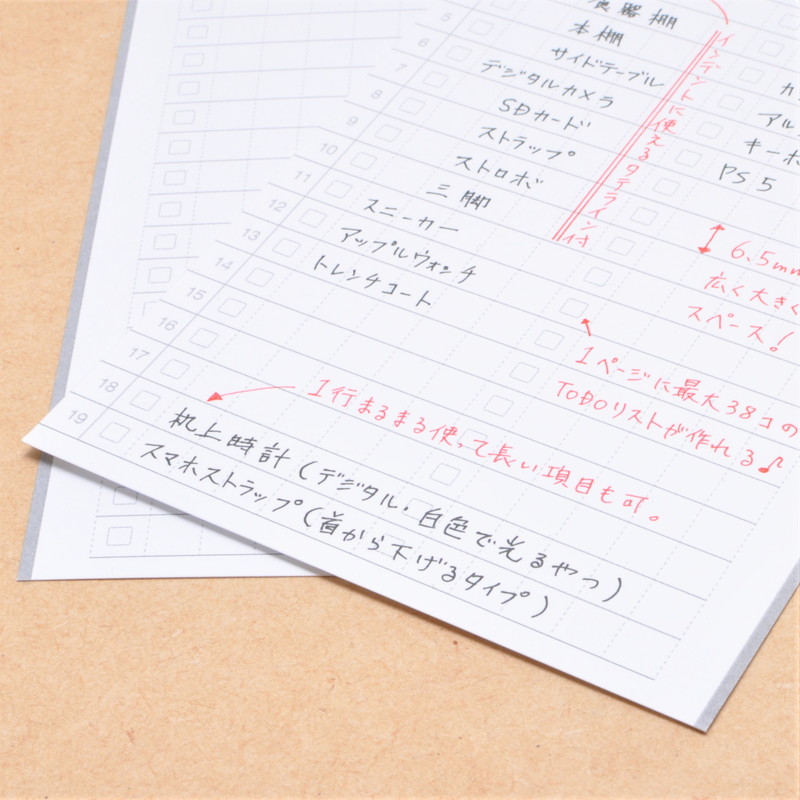 5
食器棚
6
本棚
7
サイドテーブル
8
デジタルカメラ
9
SDカード
10
ストラップ
11
ストロボ
12
三脚
13
スニーカー
14
アップルウォッチ
15
トレンチコート
16
17
18
机上時計(デジタル・白色で光るやつ)
19
スマホストラップ(首から下げるタイプ)
インデントに使えるタテライン付
カ
アル
キーボ
PS5
6.5mm
広く大きく
スペース!
1ページに最大38コの
TODOリストが作れる♪
1行まるまる使って長い項目も可。